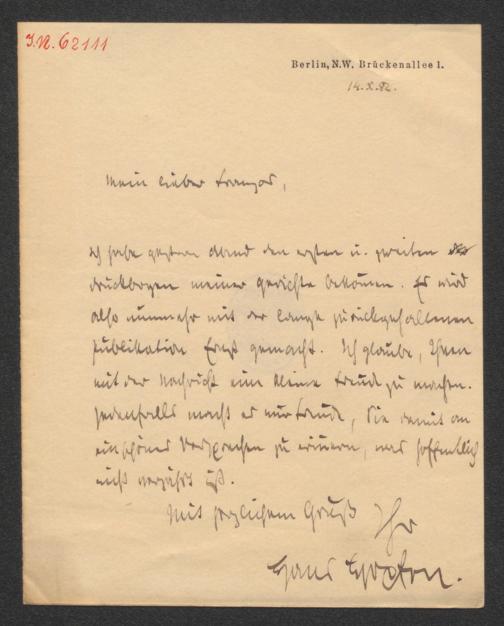 I.N. 62111
Berlin, N.W. Brückenallee 1.
14. X. 92.
Mein lieber Franzos,
ich habe gestern abend den ersten u. zweiten
druckbogen meiner gedichte bekommen. Es wird
also nunmehr mit der lange zurückgehaltenen
publikation Ernst gemacht. Ich glaube, Ihnen
mit der nachricht eine kleine freude zu machen.
jedenfalls macht es mir freude, Sie damit an
ein schönes Versprechen zu erinnern, was hoffentlich
nicht verjährt ist.
Mit herzlichem Gruß Ihr
Hans